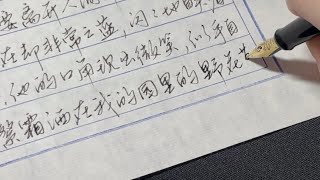 要离开人间
在却非常之蓝,闪闪地
他的口角现出微笑,似乎自
繁霜洒在我的园里的野花